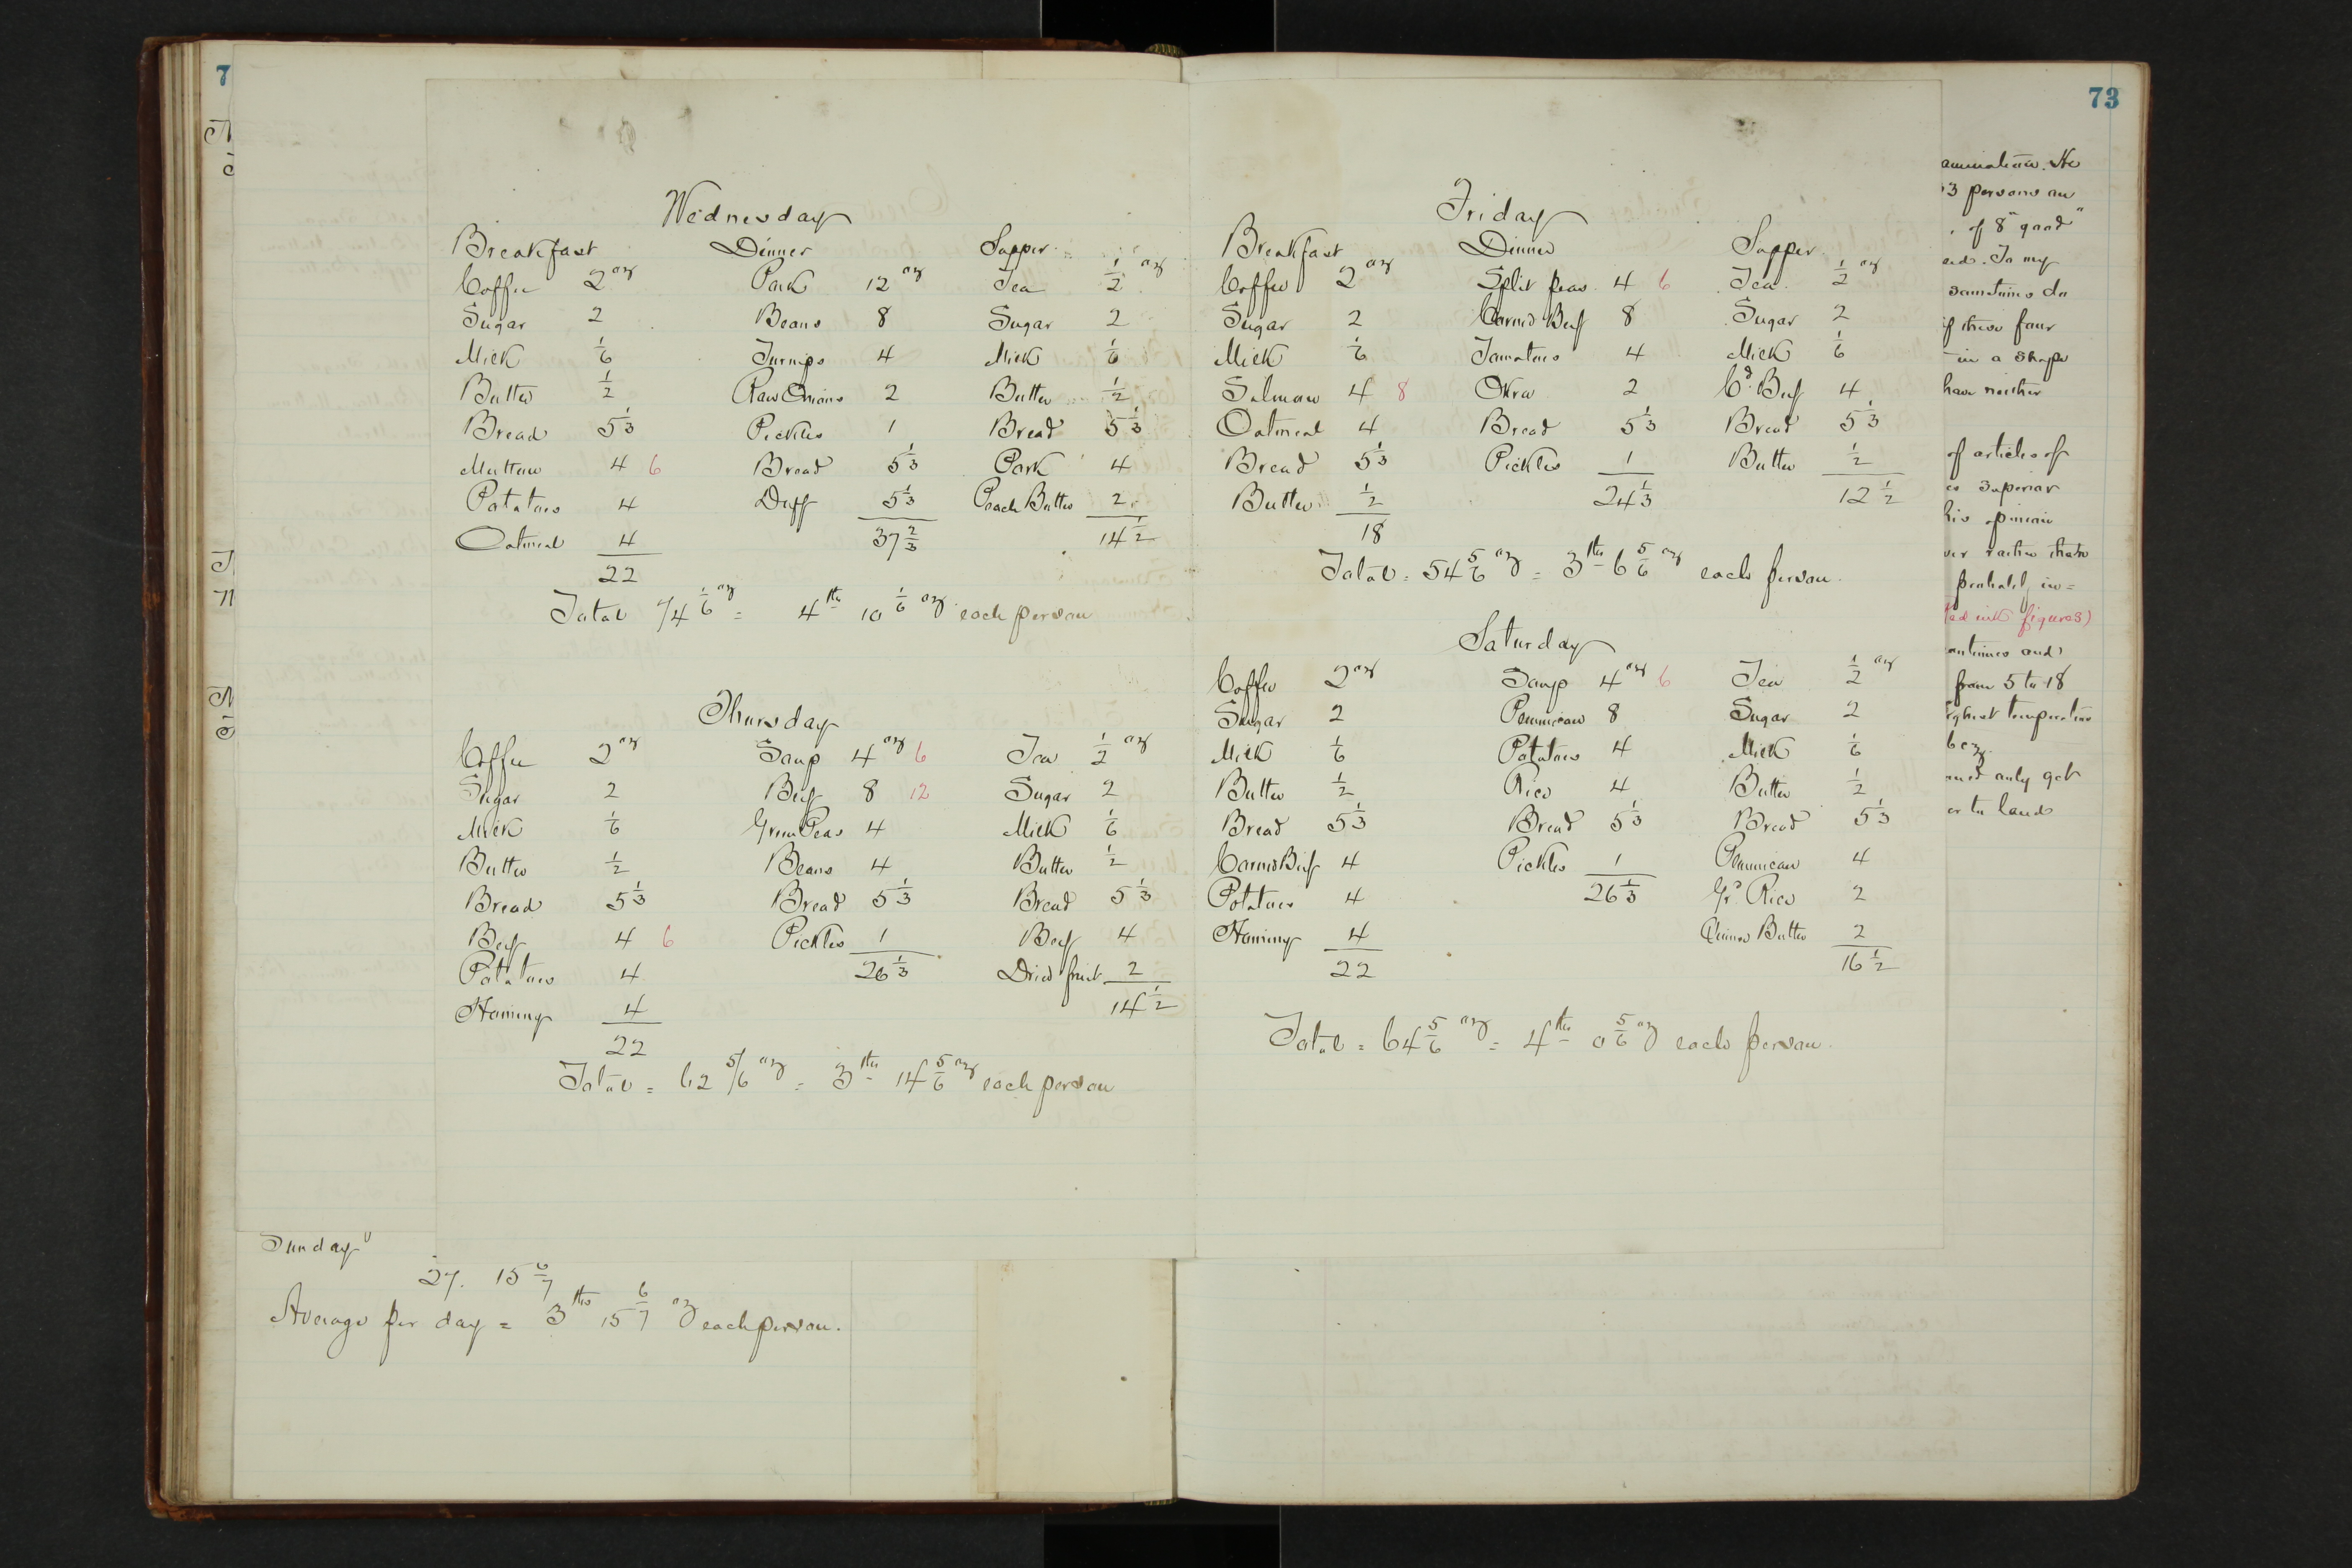 7
73
Wednesday
Breakfast Dinner Supper
Coffee 2 oz Pork 12 oz Tea 1/2 oz
Sugar 2 Beans 8 Sugar 2
Milk 1/6 Turnips 4 Milk 1/6
Butter 1/2 Raw Onions 2 Butter 1/2
Bread 5 1/3 Pickles 1 Bread 5 1/3
Mutton 4 6 Bread 5 1/3 Pork 4
Potatoes 4 Duff 5 1/3 Peach Butter 2
Oatmeal 4 37 2/3 14 1/2
22
Total 74 1/6 oz = 4 lbs 10 1/6 oz each person
Thursday
Coffee 2 oz Soup 4 oz 6 Tea 1/2 oz
Sugar 2 Beef 8 12 Sugar 2
Milk 1/6 Green Peas 4 Milk 1/6
Butter 1/2 Beans 4 Butter 1/2
Bread 5 1/3 Bread 5 1/3 Bread 5 1/3
Beef 4 6 Pickles 1 Beef 4
Potatoes 4 26 1/3 Dried fruit 2
Hominy 4 14 1/2
22
Total = 62 5/6 oz = 3 lbs 14 5/6 oz each person
Sunday
27. 15 6/7
Average per day = 3 lbs 15 6/7 oz each person.
Friday
Breakfast Dinner Supper
Coffee 2 oz Split peas 4 6 Tea 1/2 oz
Sugar 2 Corned Beef 8 Sugar 2
Milk 1/6 Tomatoes 4 Milk 1/6
Salmon 4 8 Okra 2 Cd. Beef 4
Oatmeal 4 Bread 5 1/3 Bread 5 1/3
Bread 5 1/3 Pickles 1 Butter 1/2
Butter 1/2 24 1/3 12 1/2
18
Total = 54 5/6 oz = 3 lbs 6 5/6 oz each person.
Saturday
Coffee 2 oz Soup 4 oz 6 Tea 1/2 oz
Sugar 2 Pemmican 8 Sugar 2
Milk 1/6 Potatoes 4 Milk 1/6
Butter 1/2 Rice 4 Butter 1/2
Bread 5 1/3 Bread 5 1/3 Bread 5 1/3
Corned Beef 4 Pickles 1 Pemmican 4
Potatoes 4 26 1/3 Gr. Rice 2
Hominy 4 Quince Butter 2
22 16 1/2
Total = 64 5/6 oz = 4 lbs 0 5/6 oz each person.
amination. He
3 persons an
of 8 "good"
In my
sometimes do
if these four
in a shape
have neither
of articles of
superior
his opinion
rather than
probably in=
red ink figures)
and
from 5 to 18
highest temperature
only get
or to land